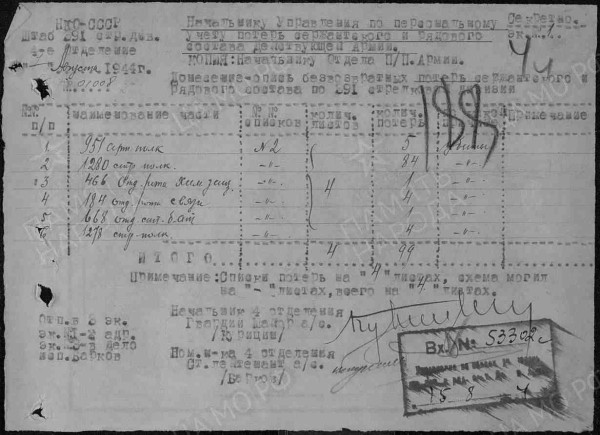 НКО-СССР
Штаб 291 стр.див.
4-ое Отделение
Августа 1944г.
№ 01008
Начальнику Управления по персональному
учету потерь сержантского и рядового
состава действующей Армии.
КОПИЯ: Начальнику Отдела П/П. Армии.
Секретно.
экз.№1.
Донесение-опись безвозвратных потерь сержантского и
рядового состава по 291 стрелковой дивизии
№№ п/п наименование части №№ списков колич. листов колич. потерь Примечание
1 951 арт. полк №2 5
2 1280 стр. полк. -"- 84 -"-
3 466 Отд. рота хим. защ. -"- 4 1 -"-
4 184 отд. рота связи -"- 4 -"-
5 668 отд. сап. бат -"- 1 -"-
6 1278 стр. полк. -"- 4 -"-
ИТОГО 4 99
Примечание: Списки потерь на "4" листах, схема могил
на "-" листах, всего на "4" листах.
Отп. в 3 экз.
экз. №1-й адр.
в дело
исп. Барков
Начальник 4 отделения
Гвардии Майор а/с.
/Курицин/
Пом. н-ка 4 отделения
Ст. лейтенант а/с.
/Барков/
Вх. № 53302с
15 8 4